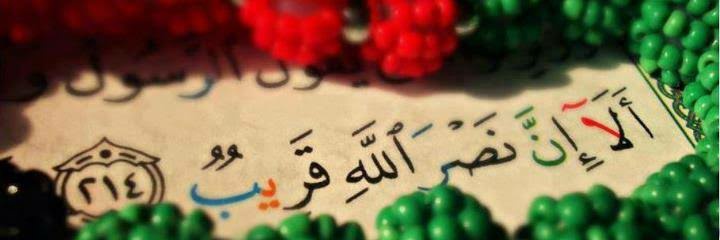 يَقُولَ الرَّسُولُ وَ
أَلَآ إِنَّ نَصْرَ ٱللَّهِ قَرِيبٌ ٢١٤